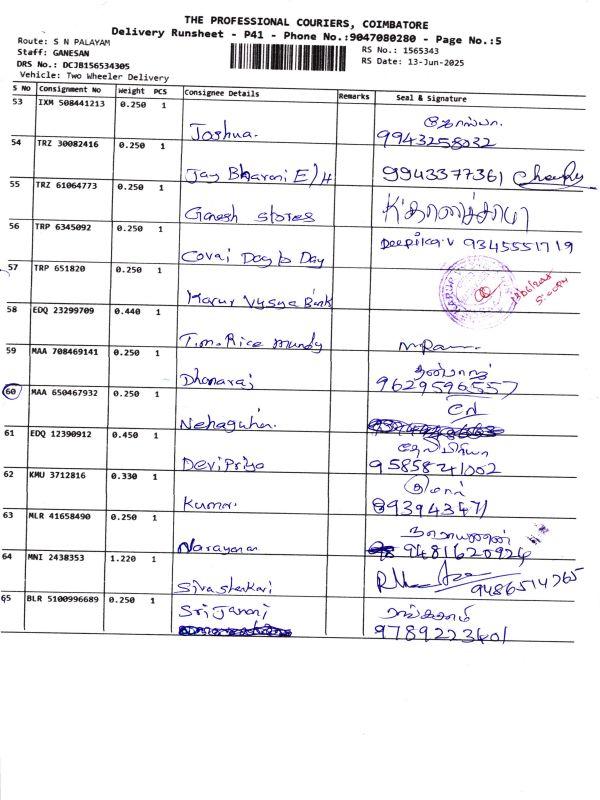 THE PROFESSIONAL COURIERS, COIMBATORE
Delivery Runsheet - P41 - Phone No.:9047080280 - Page No.:5
Route: S N PALAYAM
Staff: GANESAN
DRS No.: DCJB156534305
Vehicle: Two Wheeler Delivery
RS No.: 1565343
RS Date: 13-Jun-2025
S No Consignment No Weight PCS Consignee Details Remarks Seal & Signature
53 IXM 508441213 0.250 1
Joshua.
9943258032
54 TRZ 30082416 0.250 1
Jay Bharani E/H 9943377361
55 TRZ 61064773 0.250 1
Ganesh stores
56 TRP 6345092 0.250 1
Covai Day to Day Deepika.V 9345551719
57 TRP 651820 0.250 1
Karur Vysya Bank
58 EDQ 23299709 0.440 1
T.m. Rice mundy
59 MAA 708469141 0.250 1
Dhanaraj தன்ராஜ்
9629596557
60 MAA 650467932 0.250 1
Nehaguha.
61 EDQ 12390912 0.450 1
DeviPriya தேவிபிரியா
9585841002
62 KMU 3712816 0.330 1
Kumar. குமார்
63 MLR 41658490 0.250 1
Narayana நாராயணன்
9481620924
64 MNI 2438353 1.220 1
Sivasankari 9486514765
65 BLR 5100996689 0.250 1
Sri Janani
9789223401